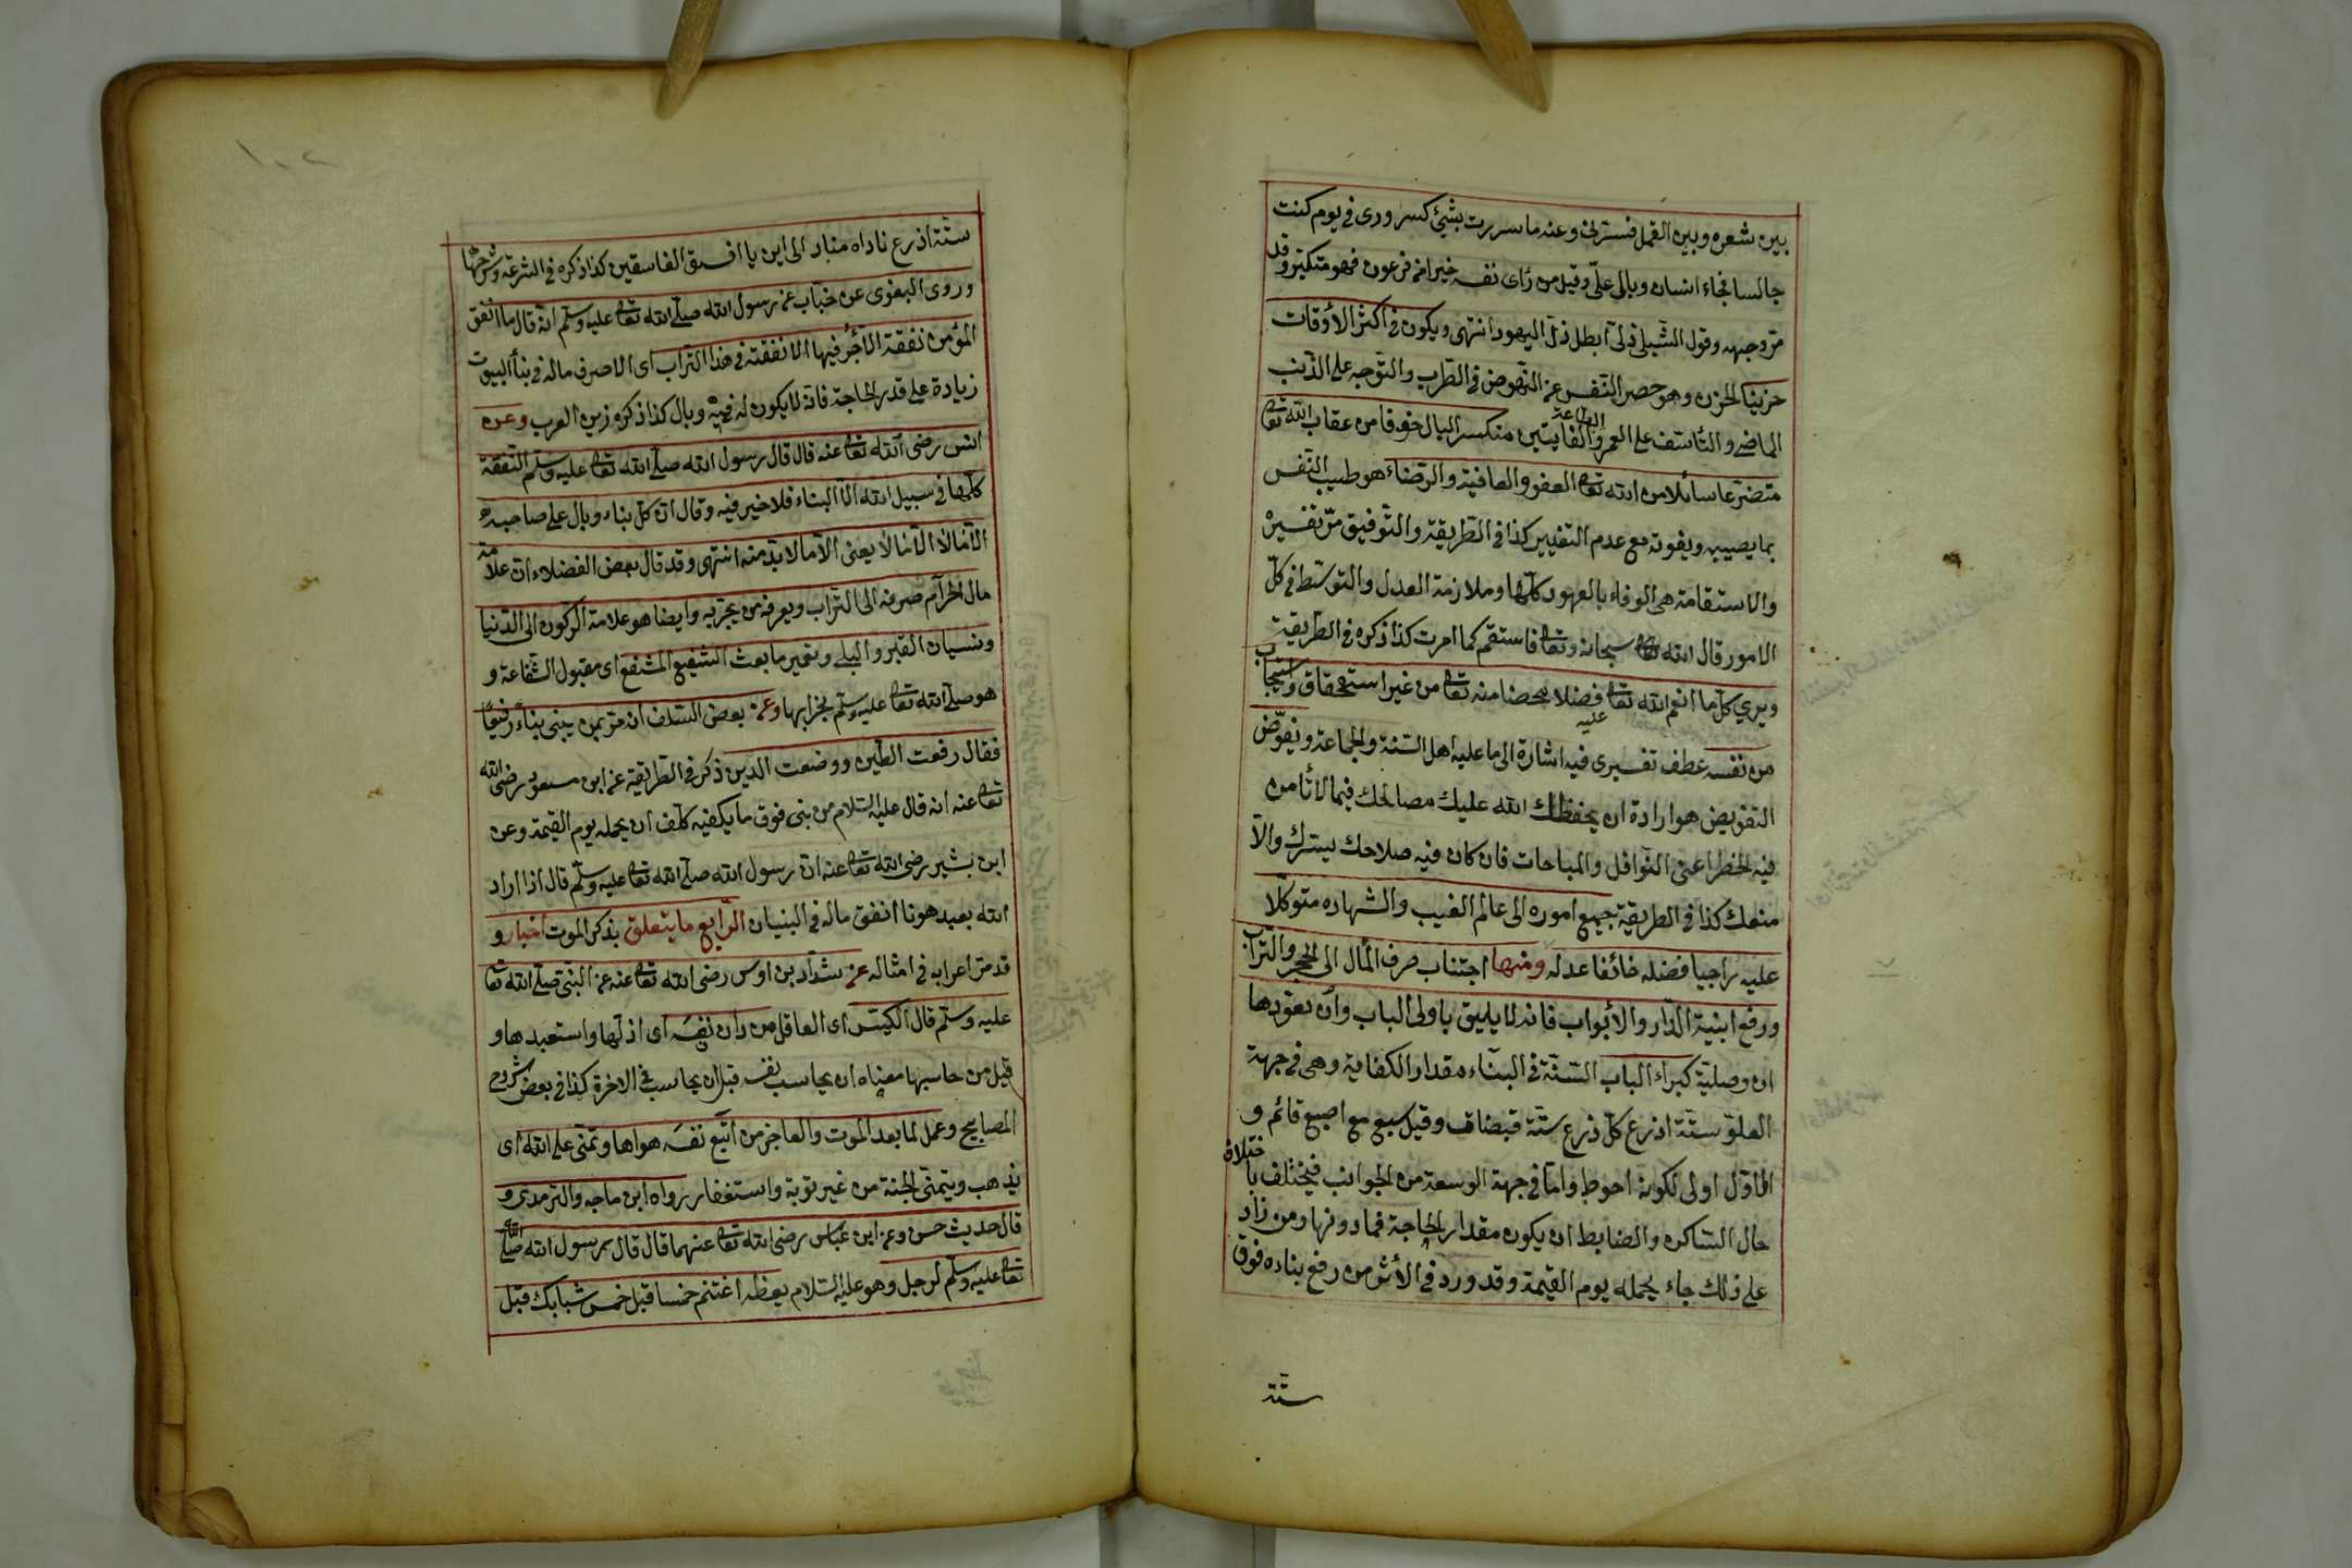 بين شعره وبين القمل فسترنى وعنه ما سررت بشئ كسرورى فى يوم كنت
جالسا فجاء انسان وبال علىّ وقيل من رأى نفسه خيرا من فرعون فهو متكبر وقد
مرّ وجهه وقول الشبلى ذلى ابطل ذل اليهود انتهى ويكون فى اكثر الأوقات
حزينا الحزن وهو حصر النفس عن النهوض فى الطرب والتوجه على الذنب
الماضى والتأسف على العمر والطاعة الفايتين منكسر البال خوفا من عقاب الله تعالى
متضرعا سائلا من الله تعالى العفو والعافية والرضاء هو طيب النفس
بما يصيبه ويفوته مع عدم التغيير كذا فى الطريقة والتوفيق مرّ تفسيره
والاستقامة هى الوفاء بالعهود كلّها وملازمة العدل والتوسّط فى كلّ
الامور قال الله سبحانه وتعالى فاستقم كما امرت كذا ذكره فى الطريقة
ويرى كلّ ما انعم الله تعالى عليه فضلا محضا منه تعالى من غير استحقاق واستيجاب
من نفسه عطف تفسيرى فيه اشارة الى ما عليه اهل السّنة والجماعة ويفوّض
التفويض هو ارادة ان يحفظك الله عليك مصالحك فيما لا تأمن
فيه الخطر اعنى النّوافل والمباحات فان كان فيه صلاحك يسّرك والّا
منعك كذا فى الطريقة جميع اموره الى عالم الغيب والشهاده متوكّلا
عليه راجيا فضله خائفا عدله ومنها اجتناب صرف المال الى الحجر والتراب
ورفع ابنية الدّار والأبواب فانه لا يليق باولى الباب وان يعوّدها
ان وصلية كبراء الباب السّنّة فى البناء مقدار الكفاية وهى فى جهة
العلوّ ستّة اذرع كلّ ذرع ستّة قبضات وقيل سبع مع اصبع قائم و
الاوّل اولى لكونه احوط وامّا فى جهة الوسعة من الجوانب فيختلف باختلاف
حال الساكن والضابط ان يكون مقدار الحاجة فما دونها ومن زاد
على ذلك جاء يحمله يوم القيمة وقد ورد فى الأثر من رفع بناءه فوق
ستّة
ستّة اذرع ناداه مناد الى اين يا افسق الفاسقين كذا ذكره فى الشرعة وشرحها
وروى البغوى عن خبّاب عن رسول الله صلّى الله تعالى عليه وسلّم انّه قال ما انفق
المؤمن نفقة الّا أجر فيها الا نفقته فى هذا التراب اى الا صرف ماله فى بناء البيوت
زيادة على قدر الحاجة فانّه لا يكون له فيه وبال كذا ذكره زين العرب وعن
انس رضى الله تعالى عنه قال قال رسول الله صلّى الله تعالى عليه وسلّم النّفقة
كلّها فى سبيل الله الّا البناء فلا خير فيه وقال انّ كلّ بناء وبال على صاحبه
الّا مالا الّا مالا يعنى الّا ما لا بدّ منه انتهى وقد قال بعض الفضلاء انّ علامة
مال الحرام صرفه الى التراب ويعرفه من يجرّبه وايضا هو علامة الركون الى الدّنيا
ونسيان القبر والبلى وتعمير ما بعث الشفيع المشفع اى مقبول الشّفاعة و
هو صلّى الله تعالى عليه وسلّم بخرابها وعن بعض السّلف انه مرّ بمن يبنى بناءً رفيعًا
فقال رفعت الطّين ووضعت الدين ذكر فى الطريقة عن ابن مسعود رضى الله
تعالى عنه انه قال عليه السّلام من بنى فوق ما يكفيه كلّف ان يحمله يوم القيمة وعن
ابن بشير رضى الله تعالى عنه انّ رسول الله صلّى الله تعالى عليه وسلّم قال اذا اراد
الله بعبد هونا انفق ماله فى البنيان الرّابع ما يتعلق بذكر الموت اخبار و
قد مرّ اعرابه فى امثاله عن شدّاد بن اوس رضى الله تعالى عنه عن النّبىّ صلّى الله تعالى
عليه وسلّم قال الكيّس اى العاقل من دان نفسه اى اذلّها واستعبدها و
قيل من حاسبها معناه ان يحاسب نفسه قبل ان يحاسب فى الاخرة كذا فى بعض شروح
المصابيح وعمل لما بعد الموت والعاجز من اتّبع نفسه هواها وتمنّى على الله اى
يذهب ويتمنّى الجنّة من غير توبة واستغفار رواه ابن ماجه والترمذى و
قال حديث حسن وعن ابن عبّاس رضى الله تعالى عنهما قال قال رسول الله صلّى الله
تعالى عليه وسلّم لرجل وهو عليه السّلام يعظه اغتنم خمسا قبل خمس شبابك قبل